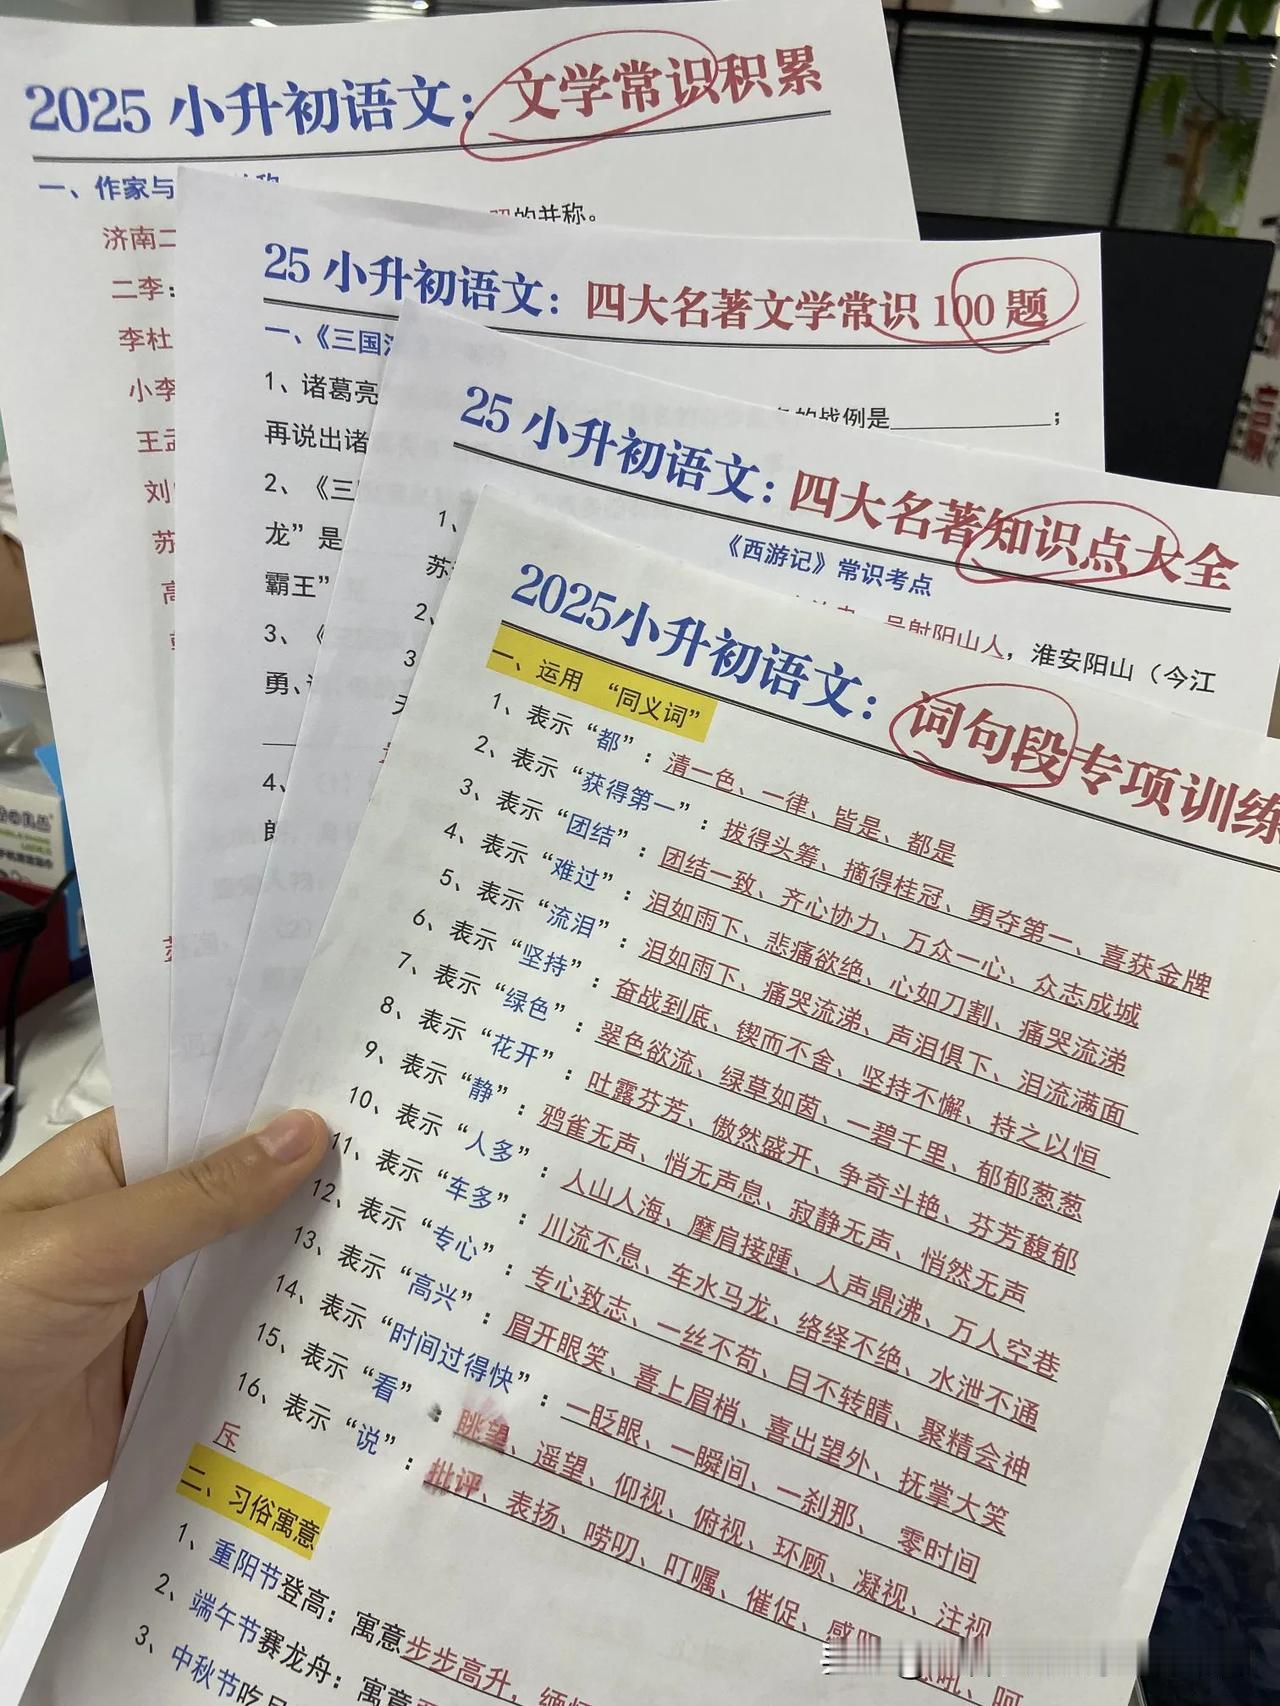 2025 小升初语文：文学常识积累
一、作家与
的并称。
济南二
二李：
李杜
小李
王孟
刘
苏
高
25 小升初语文：四大名著文学常识 100 题
一、《三国演
1、诸葛亮
的战例是____________；
再说出诸
2、《三
龙”是
霸王”
3、《
勇、
4、
25 小升初语文：四大名著知识点大全
《西游记》常识考点
1、
射阳山人，淮安阳山（今江
苏
2、
3
2025小升初语文：词句段专项训练
一、运用 “同义词”
1、表示“都”：清一色、一律、皆是、都是
2、表示“获得第一”：拔得头筹、摘得桂冠、勇夺第一、喜获金牌
3、表示“团结”：团结一致、齐心协力、万众一心、众志成城
4、表示“难过”：泪如雨下、悲痛欲绝、心如刀割、痛哭流涕
5、表示“流泪”：泪如雨下、痛哭流涕、声泪俱下、泪流满面
6、表示“坚持”：奋战到底、锲而不舍、坚持不懈、持之以恒
7、表示“绿色”：翠色欲流、绿草如茵、一碧千里、郁郁葱葱
8、表示“花开”：吐露芬芳、傲然盛开、争奇斗艳、芬芳馥郁
9、表示“静”：鸦雀无声、悄无声息、寂静无声、悄然无声
10、表示“人多”：人山人海、摩肩接踵、人声鼎沸、万人空巷
11、表示“车多”：川流不息、车水马龙、络绎不绝、水泄不通
12、表示“专心”：专心致志、一丝不苟、目不转睛、聚精会神
13、表示“高兴”：眉开眼笑、喜上眉梢、喜出望外、抚掌大笑
14、表示“时间过得快”：一眨眼、一瞬间、一刹那、零时间
15、表示“看”：眺望、遥望、仰视、俯视、环顾、凝视、注视
16、表示“说”：批评、表扬、唠叨、叮嘱、催促、感叹、
斥
二、习俗寓意
1、重阳节登高：寓意步步高升，
2、端午节赛龙舟：寓意
3、中秋节吃月